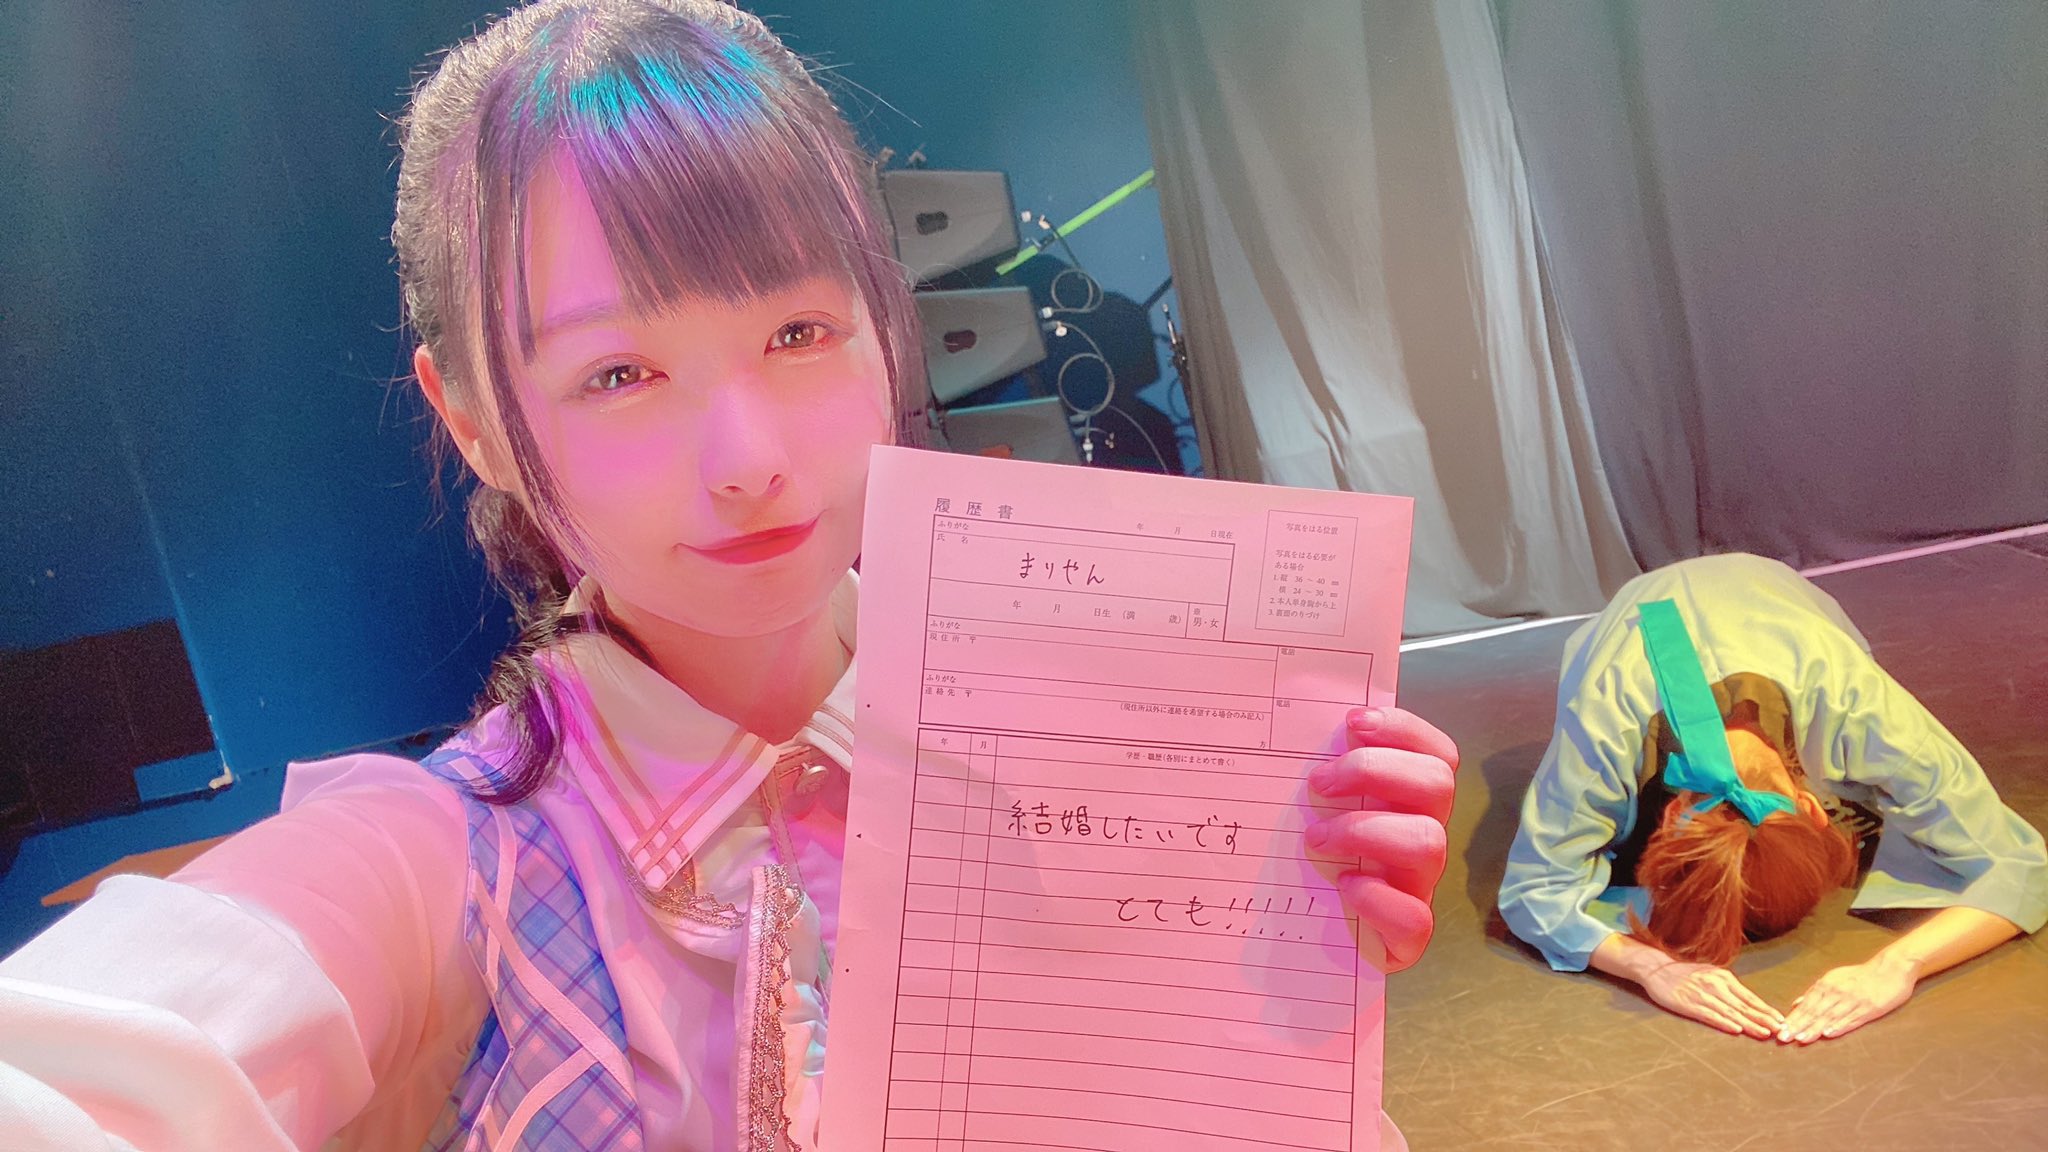 履歴書
年 月 日現在
ふりがな
氏 名
まりやん
年 月 日生 (満 歳)
男・女
写真をはる位置
写真をはる必要が
ある場合
1. 縦 36 ～ 40 ㎜
横 24 ～ 30 ㎜
2. 本人単身胸から上
3. 裏面のりづけ
ふりがな
電話
現住所 〒
ふりがな
電話
連絡先 〒
(現住所以外に連絡を希望する場合のみ記入)
方
年 月 学歴・職歴(各別にまとめて書く)
結婚したいです
とても!!!!!